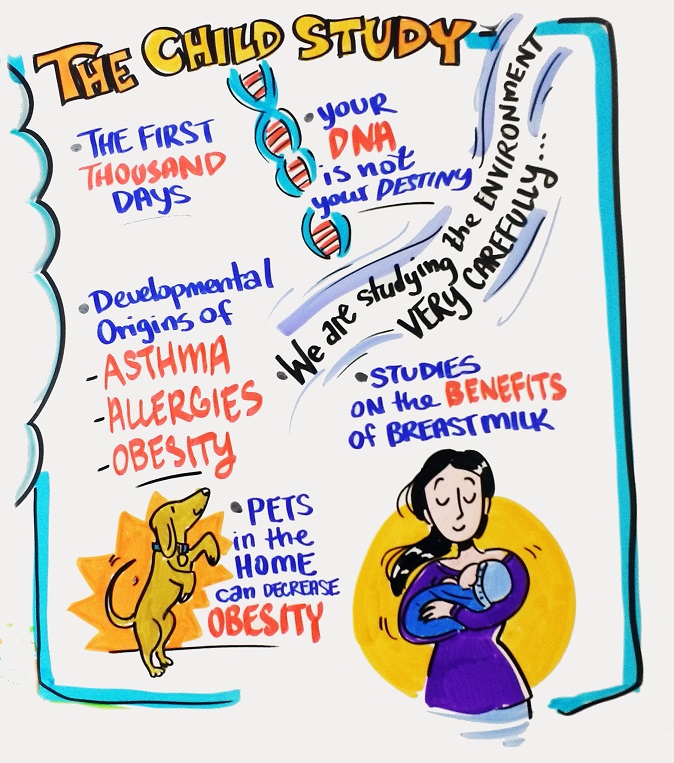 THE CHILD STUDY
• THE FIRST
THOUSAND
DAYS
• YOUR
DNA
is not
your DESTINY
• We are studying the ENVIRONMENT
VERY CAREFULLY...
• Developmental
Origins of
- ASTHMA
- ALLERGIES
- OBESITY
• STUDIES
ON the BENEFITS
of BREASTMILK
• PETS
in the
HOME
can DECREASE
OBESITY